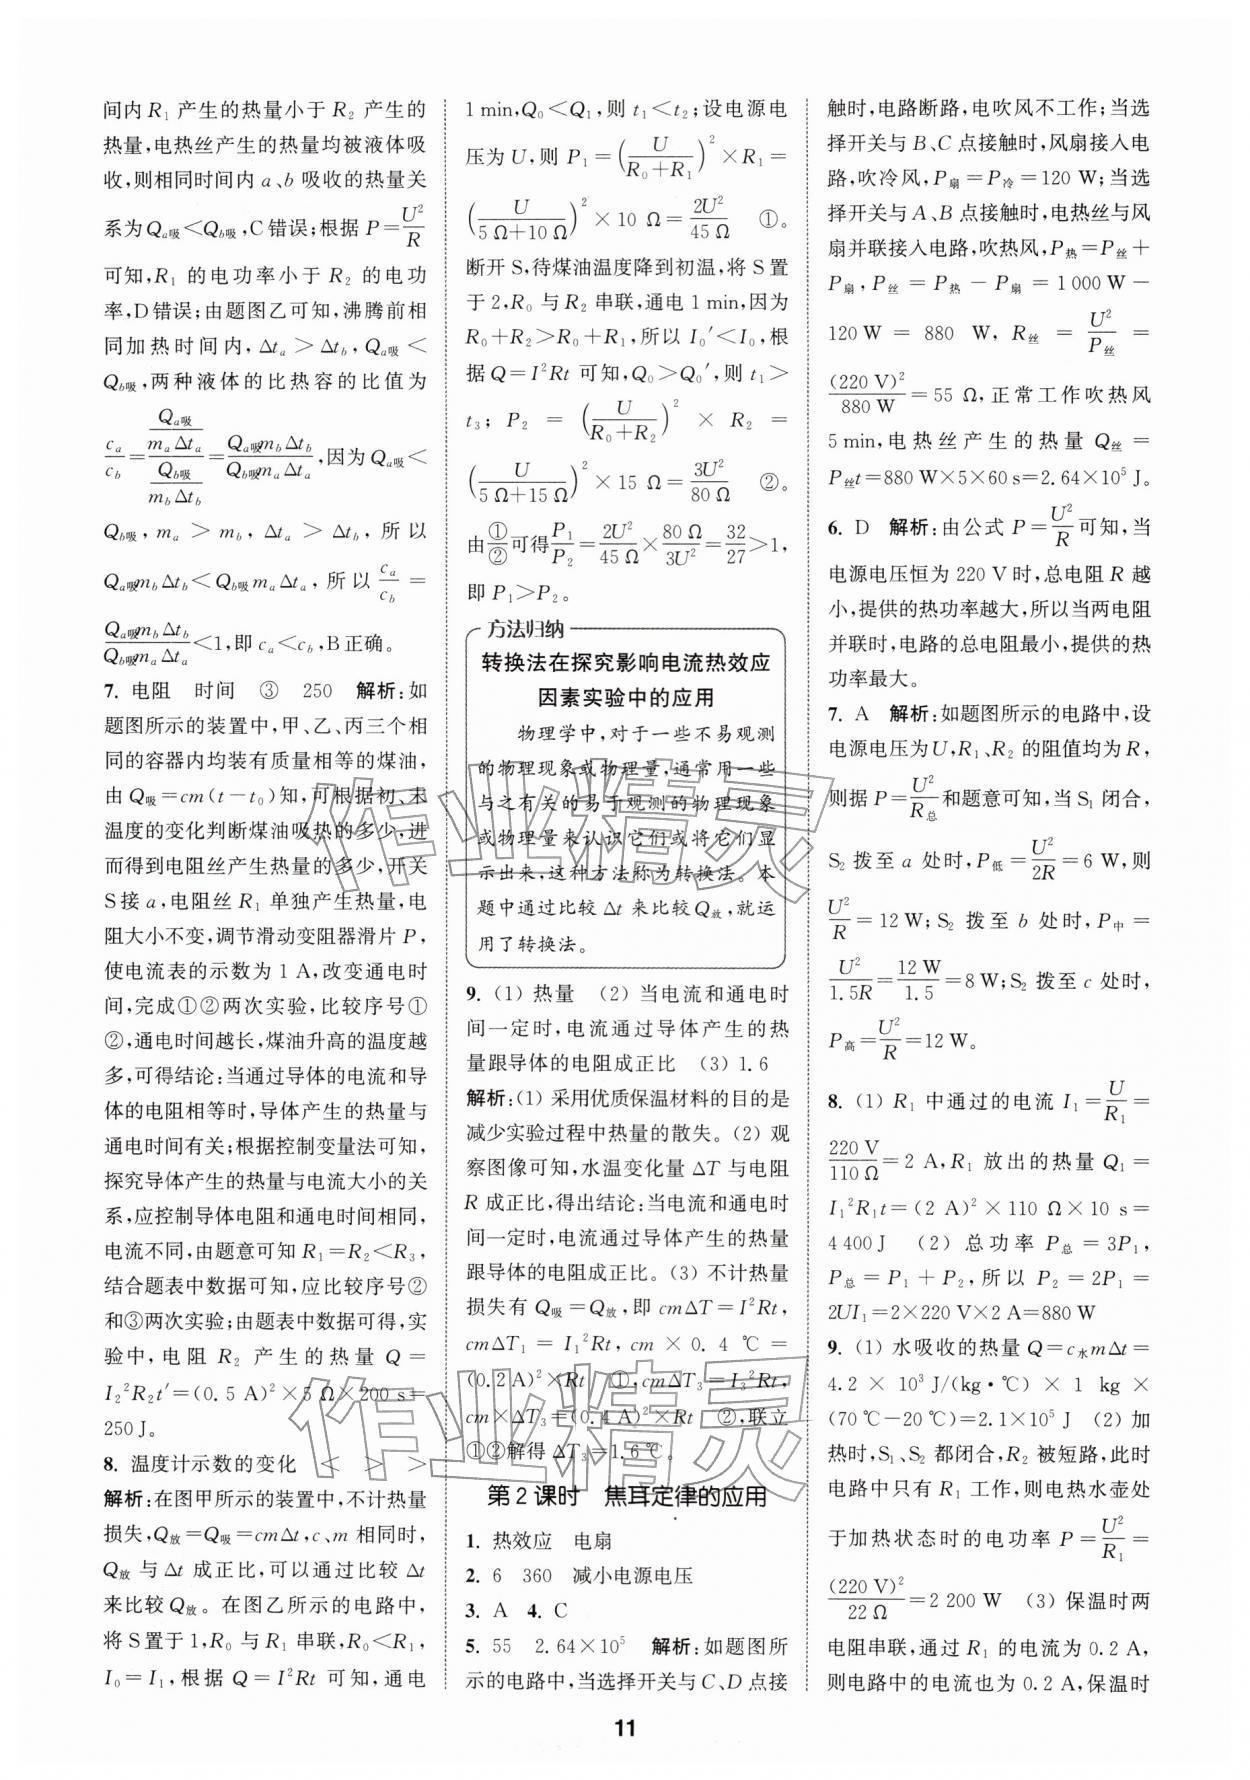 间内 R₁ 产生的热量小于 R₂ 产生的
热量,电热丝产生的热量均被液体吸
收,则相同时间内 a、b 吸收的热量关
系为 Qa吸<Qb吸,C 错误;根据 P=U²/R
可知,R₁ 的电功率小于 R₂ 的电功
率,D 错误;由题图乙可知,沸腾前相
同加热时间内,Δta>Δtb,Qa吸<
Qb吸,两种液体的比热容的比值为
ca/cb=(Qa吸/(maΔta))/(Qb吸/(mbΔtb))=Qa吸mbΔtb/(Qb吸maΔta),因为 Qa吸<
Qb吸,ma>mb,Δta>Δtb,所以
Qa吸mbΔtb<Qb吸maΔta,所以 ca/cb=
Qa吸mbΔtb/(Qb吸maΔta)<1,即 ca<cb,B 正确。
7. 电阻 时间 ③ 250 解析:如
题图所示的装置中,甲、乙、丙三个相
同的容器内均装有质量相等的煤油,
由 Q吸=cm(t-t₀)知,可根据初、末
温度的变化判断煤油吸热的多少,进
而得到电阻丝产生热量的多少,开关
S 接 a,电阻丝 R₁ 单独产生热量,电
阻大小不变,调节滑动变阻器滑片 P,
使电流表的示数为 1 A,改变通电时
间,完成①②两次实验,比较序号①
②,通电时间越长,煤油升高的温度越
多,可得结论:当通过导体的电流和导
体的电阻相等时,导体产生的热量与
通电时间有关;根据控制变量法可知,
探究导体产生的热量与电流大小的关
系,应控制导体电阻和通电时间相同,
电流不同,由题意可知 R₁=R₂<R₃,
结合题表中数据可知,应比较序号②
和③两次实验;由题表中数据可得,实
验中,电阻 R₂ 产生的热量 Q=
I₂²R₂t′=(0.5 A)²×5 Ω×200 s=
250 J。
8. 温度计示数的变化 < > >
解析:在图甲所示的装置中,不计热量
损失,Q放=Q吸=cmΔt,c、m 相同时,
Q放 与 Δt 成正比,可以通过比较 Δt
来比较 Q放。在图乙所示的电路中,
将 S 置于 1,R₀ 与 R₁ 串联,R₀<R₁,
I₀=I₁,根据 Q=I²Rt 可知,通电
1 min,Q₀<Q₁,则 t₁<t₂;设电源电
压为 U,则 P₁=(U/(R₀+R₁))²×R₁=
(U/(5 Ω+10 Ω))²×10 Ω=2U²/45 Ω ①。
断开 S,待煤油温度降到初温,将 S 置
于 2,R₀ 与 R₂ 串联,通电 1 min,因为
R₀+R₂>R₀+R₁,所以 I₀′<I₀,根
据 Q=I²Rt 可知,Q₀>Q₀′,则 t₁>
t₃;P₂=(U/(R₀+R₂))²×R₂=
(U/(5 Ω+15 Ω))²×15 Ω=3U²/80 Ω ②。
由①/②可得P₁/P₂=2U²/45 Ω×80 Ω/3U²=32/27>1,
即 P₁>P₂。
方法归纳
转换法在探究影响电流热效应
因素实验中的应用
物理学中,对于一些不易观测
的物理现象或物理量,通常用一些
与之有关的易于观测的物理现象
或物理量来认识它们或将它们显
示出来,这种方法称为转换法。本
题中通过比较 Δt 来比较 Q放,就运
用了转换法。
9. (1) 热量 (2) 当电流和通电时
间一定时,电流通过导体产生的热
量跟导体的电阻成正比 (3) 1.6
解析:(1) 采用优质保温材料的目的是
减少实验过程中热量的散失。(2) 观
察图像可知,水温变化量 ΔT 与电阻
R 成正比,得出结论:当电流和通电时
间一定时,电流通过导体产生的热量
跟导体的电阻成正比。(3) 不计热量
损失有 Q吸=Q放,即 cmΔT=I²Rt,
cmΔT₁=I₁²Rt,cm×0.4 ℃=
(0.2 A)²×Rt ①,cmΔT₃=I₃²Rt,
cm×ΔT₃=(0.4 A)²×Rt ②,联立
①②解得 ΔT₃=1.6 ℃。
第 2 课时 焦耳定律的应用
1. 热效应 电扇
2. 6 360 减小电源电压
3. A 4. C
5. 55 2.64×10⁵ 解析:如题图所
示的电路中,当选择开关与 C、D 点接
触时,电路断路,电吹风不工作;当选
择开关与 B、C 点接触时,风扇接入电
路,吹冷风,P扇=P冷=120 W;当选
择开关与 A、B 点接触时,电热丝与风
扇并联接入电路,吹热风,P热=P丝+
P扇,P丝=P热-P扇=1 000 W-
120 W=880 W,R丝=U²/P丝=
(220 V)²/880 W=55 Ω,正常工作吹热风
5 min,电热丝产生的热量 Q丝=
P丝t=880 W×5×60 s=2.64×10⁵ J。
6. D 解析:由公式 P=U²/R可知,当
电源电压恒为 220 V 时,总电阻 R 越
小,提供的热功率越大,所以当两电阻
并联时,电路的总电阻最小,提供的热
功率最大。
7. A 解析:如题图所示的电路中,设
电源电压为 U,R₁、R₂ 的阻值均为 R,
则据 P=U²/R总和题意可知,当 S₁ 闭合,
S₂ 拨至 a 处时,P低=U²/2R=6 W,则
U²/R=12 W;S₂ 拨至 b 处时,P中=
U²/1.5R=12 W/1.5=8 W;S₂ 拨至 c 处时,
P高=U²/R=12 W。
8. (1) R₁ 中通过的电流 I₁=U/R₁=
220 V/110 Ω=2 A,R₁ 放出的热量 Q₁=
I₁²R₁t=(2 A)²×110 Ω×10 s=
4 400 J (2) 总功率 P总=3P₁,
P总=P₁+P₂,所以 P₂=2P₁=
2UI₁=2×220 V×2 A=880 W
9. (1) 水吸收的热量 Q=c水mΔt=
4.2×10³ J/(kg·℃)×1 kg×
(70 ℃-20 ℃)=2.1×10⁵ J (2) 加
热时,S₁、S₂ 都闭合,R₂ 被短路,此时
电路中只有 R₁ 工作,则电热水壶处
于加热状态时的电功率 P=U²/R₁=
(220 V)²/22 Ω=2 200 W (3) 保温时两
电阻串联,通过 R₁ 的电流为 0.2 A,
则电路中的电流也为 0.2 A,保温时
11
作业精灵
作业精灵